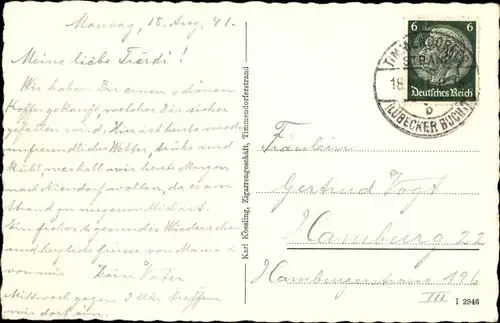 Montag, 18. Aug. 41.
Meine liebe Trudi!
Wir haben Dir einen schönen
Koffer gekauft, welcher Dir sicher
gefallen wird. Hier ist heute wieder
unfreundliches Wetter, drüke und
kühl, weshalb wir heute Morgen
nach Niendorf wollen, da es am
Strand zu ungemütlich ist.
Ein frohes & gesundes Wiedersehen
und herzliche Grüsse von Mama &
von mir Dein Vater
Mittwoch gegen 3 Uhr treffen
wir dort ein.
Karl Koesling, Zigarrengeschäft, Timmendorferstrand
6 6
Deutsches Reich
TIMMENDORFER
STRAND
18.
b
(LÜBECKER BUCHT)
Fräulein
Gertrud Vogt
Hamburg 22
Hamburgerstrasse 196
III
I 2946